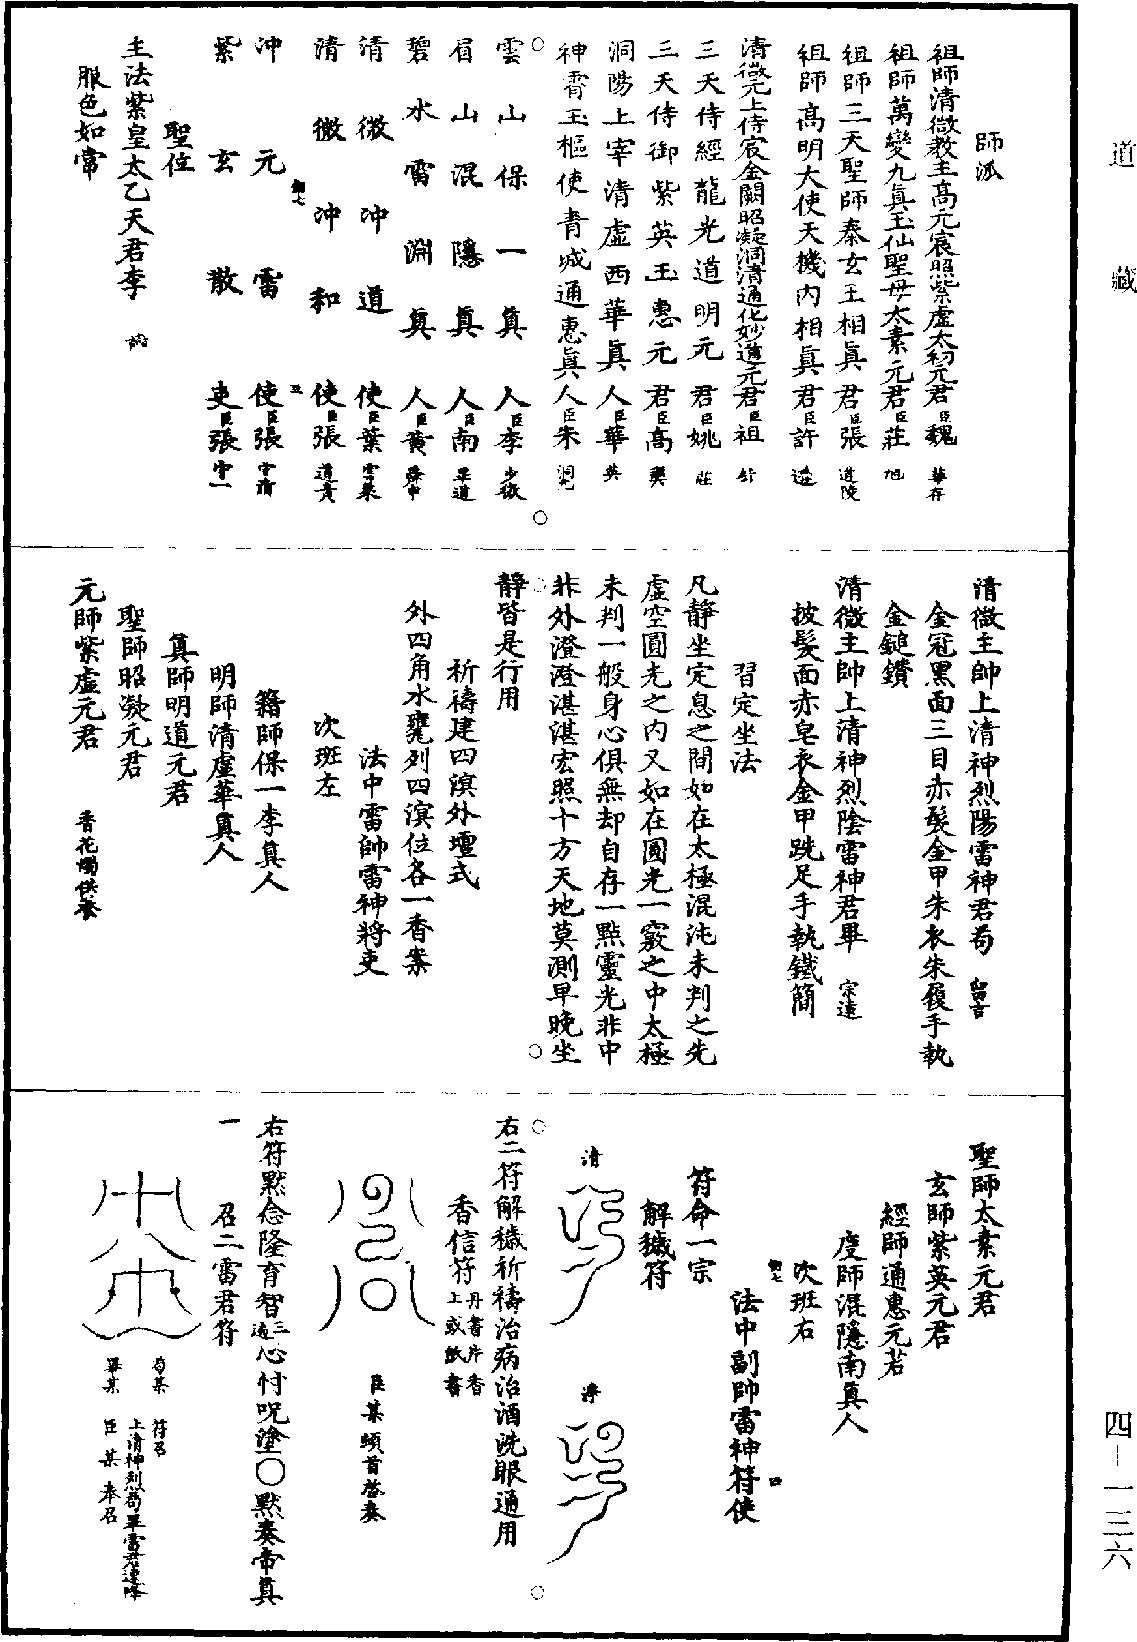 師派
祖師清微教主高元宸照紫虛太初元君臣魏華存
祖師萬變九真玉仙聖母太素元君臣莊旭
祖師三天聖師泰玄玉相真君臣張道陵
祖師高明大使天機內相真君臣許遜
清微元上侍宸金闕昭凝洞清通化妙道元君臣祖舒
三天侍經龍光道明元君臣姚莊
三天侍御紫英玉惠元君臣高奭
洞陽上宰清虛西華真人臣華英
神霄玉樞使青城通惠真人臣朱洞元
雲山保一真人臣李少微
眉山混隱真人臣南畢道
碧水雷淵真人臣黃舜申
清微冲道使臣葉雲萊
清微冲和使臣張道貴
冲元雷使臣張守清
紫玄散吏臣張守一
聖位
主法紫皇太乙天君李
服色如常
清微主帥上清神烈陽雷神君苟留吉
金冠黑面三目赤髮金甲朱衣朱履手執
金鎚鑽
清微主帥上清神烈陰雷神君畢宗遠
披髮面赤皂衣金甲跣足手執鐵簡
習定坐法
凡靜坐定息之間如在太極混沌未判之先
虛空圓光之內又如在圓光一竅之中太極
未判一般身心俱無却自存一點靈光非中
非外澄澄湛湛宏照十方天地莫測早晚坐
靜皆是行用
祈禱建四溟外壇式
外四角水甕列四溟位各一香案
法中雷帥雷神將吏
次班左
籍師保一李真人
明師清虛華真人
真師明道元君
聖師昭凝元君
元師紫虛元君 香花燭供養
聖師太素元君
玄師紫英元君
經師通惠元君
度師混隱南真人
次班右
法中副帥雷神符使
符命一宗
解穢符
清
淨
右二符解穢祈禱治病治酒洗眼通用
香信符丹書片香上或飲書
臣某頓首啓奏
右符默念隆育智三遍心忖呪塗○默奏帝真
一 召二雷君符
苟某 符召
畢某 上清神烈苟畢雷君速降
臣某奉召
道藏
四—一三六